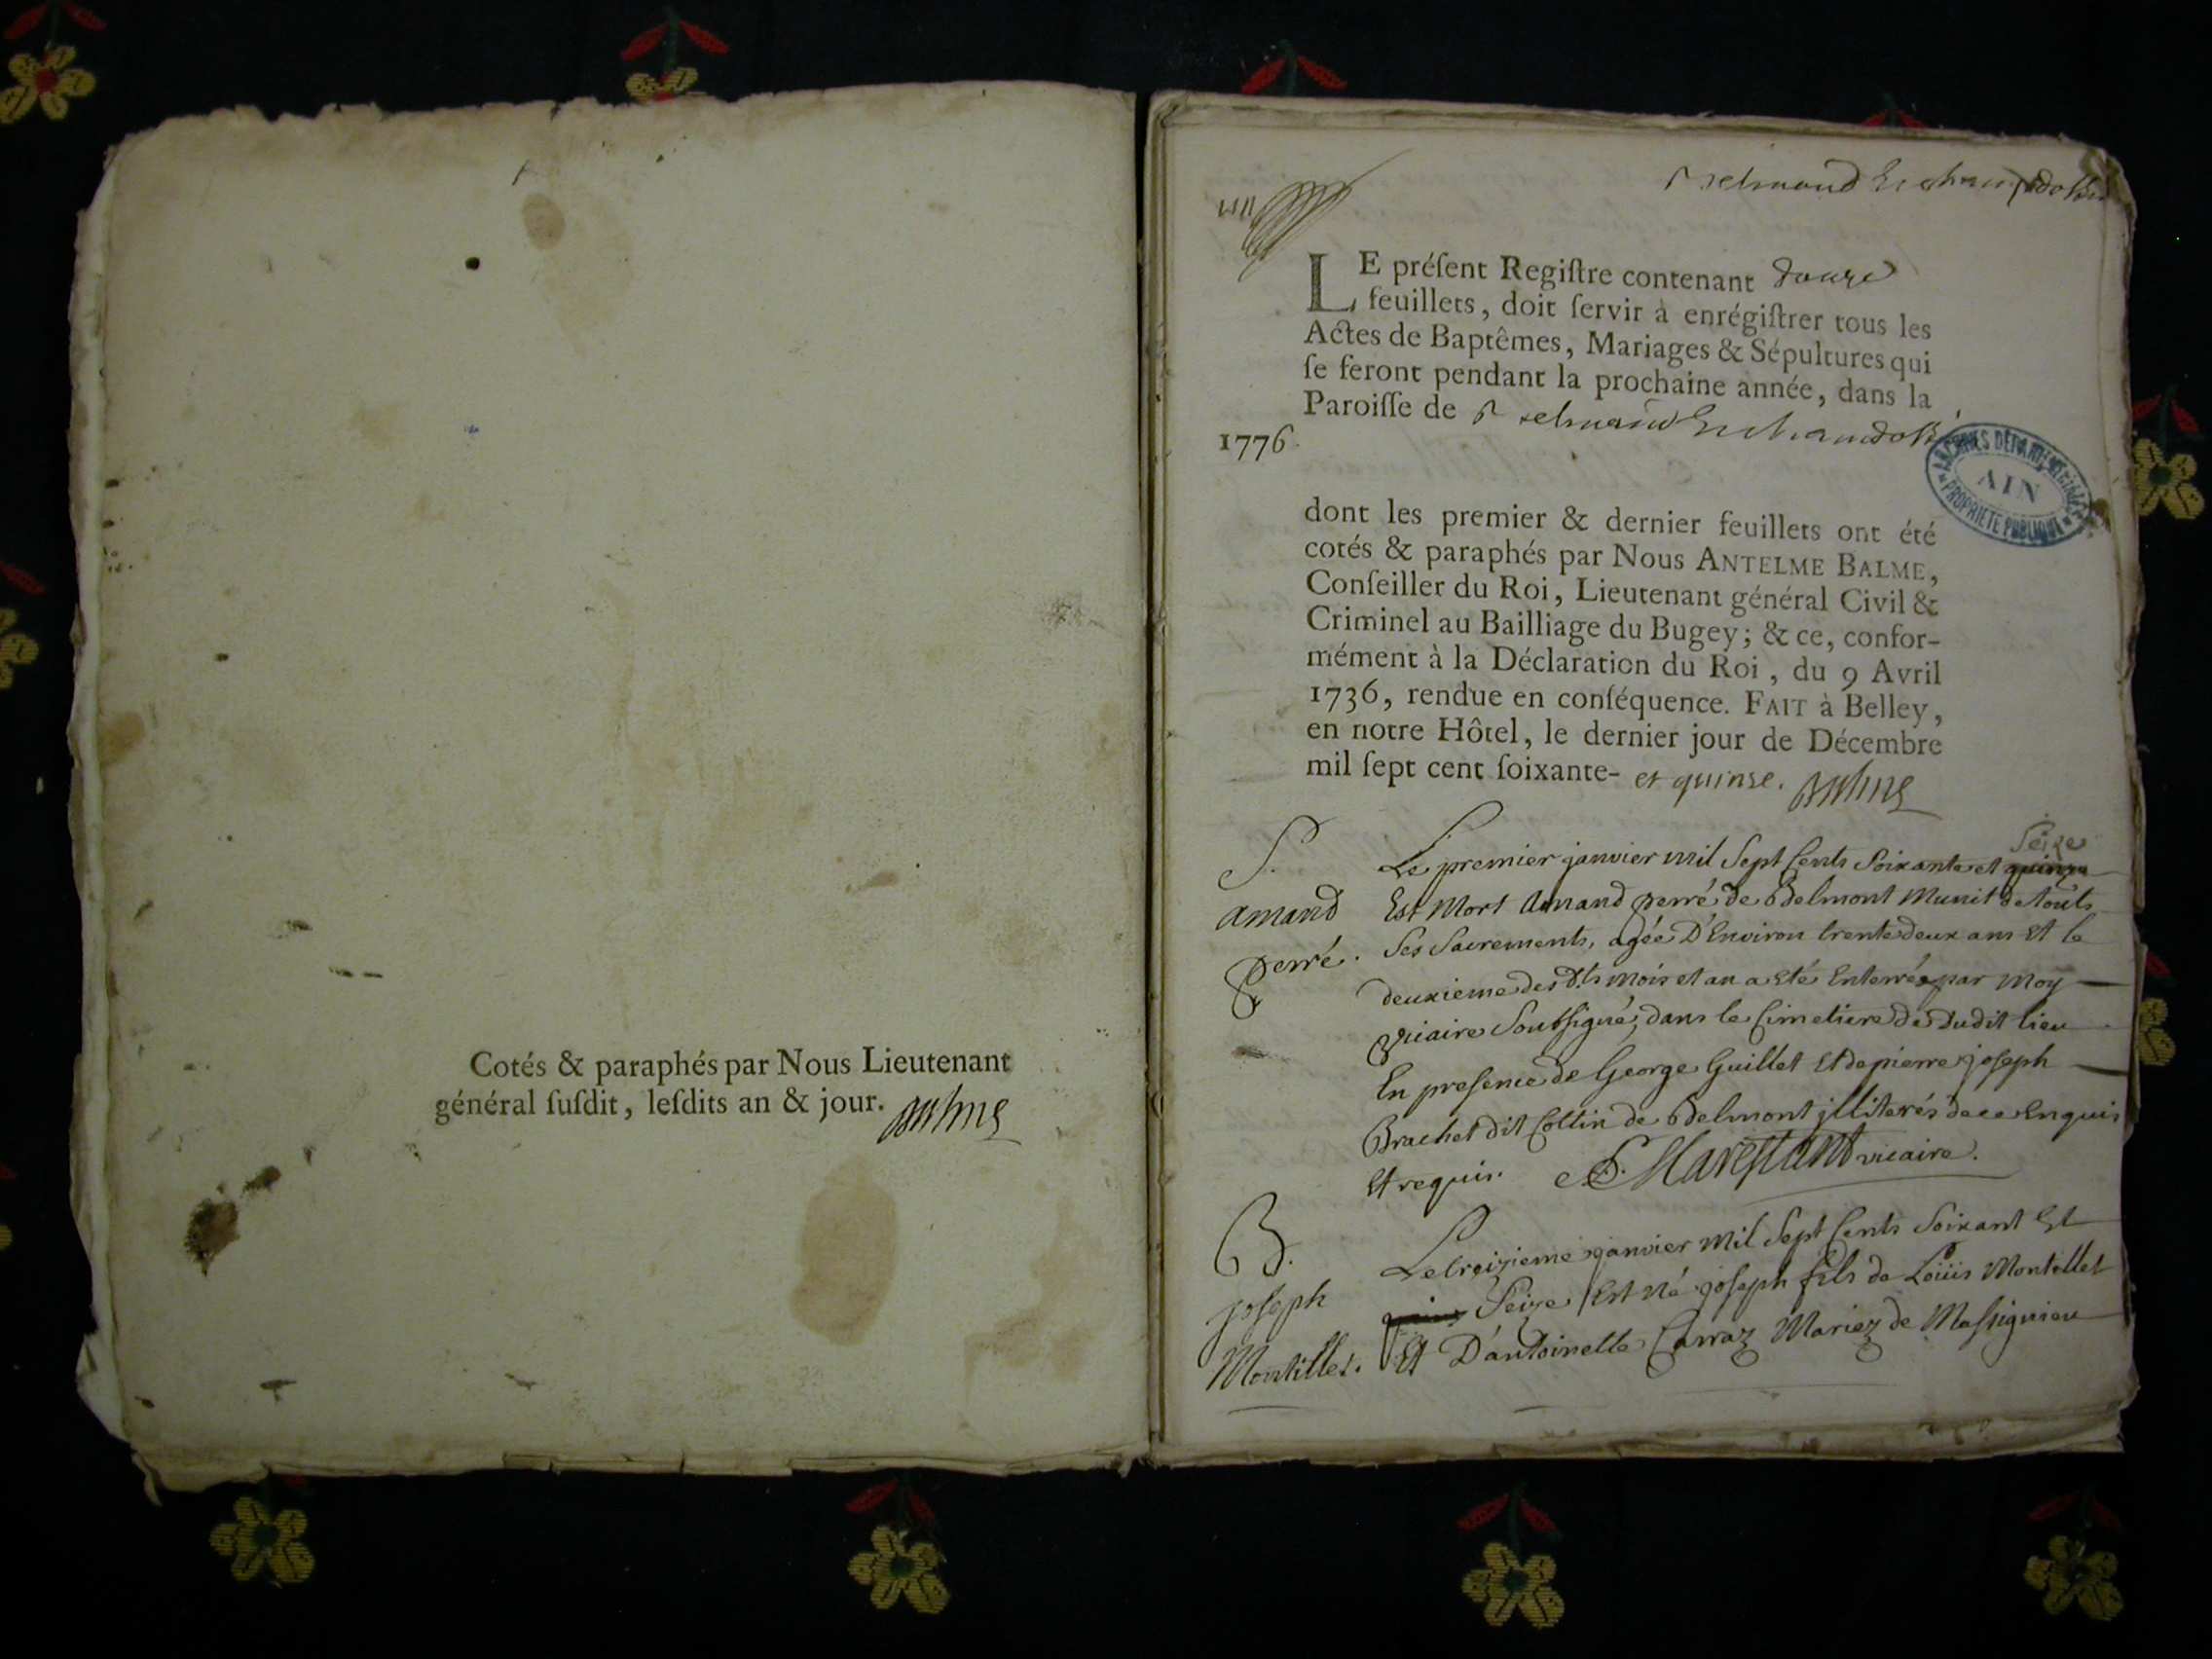 Cotés & paraphés par Nous Lieutenant
général ſuſdit, leſdits an & jour. Balme
LE préſent Regiſtre contenant douze
feuillets, doit ſervir à enrégiſtrer tous les
Actes de Baptêmes, Mariages & Sépultures qui
ſe feront pendant la prochaine année, dans la
Paroiſſe de
1776.
ARCHIVES DÉPARTEMENTALES
AIN
PROPRIÉTÉ PUBLIQUE
dont les premier & dernier feuillets ont été
cotés & paraphés par Nous ANTELME BALME,
Conſeiller du Roi, Lieutenant général Civil &
Criminel au Bailliage du Bugey; & ce, confor-
mément à la Déclaration du Roi, du 9 Avril
1736, rendue en conſéquence. FAIT à Belley,
en notre Hôtel, le dernier jour de Décembre
mil ſept cent ſoixante- et quinse. Balme
S.
amand
perré.
Seize
Le premier janvier mil Sept Cents Soixante et quinze
Est Mort Amand perré de Belmont Munit de touts
Ses Sacrements, agée D'Environ trente deux ans Et le
deuxieme des dts mois et an a Eté Enterrée par Moy
Vicaire Soussigné, dans le Cimetiere de dudit lieu
En presence de George Guillet Et de pierre joseph
Brachet dit Collin de Belmont jlliterés de ce Enquis
Et requis. Marestant vicaire.
B.
joseph
Montillet.
Le troizieme janvier Mil Sept Cents Soixant Et
Seize Est Né joseph fils de Loüis Montillet
Et D'antoinette Carraz Mariez de Massignieu